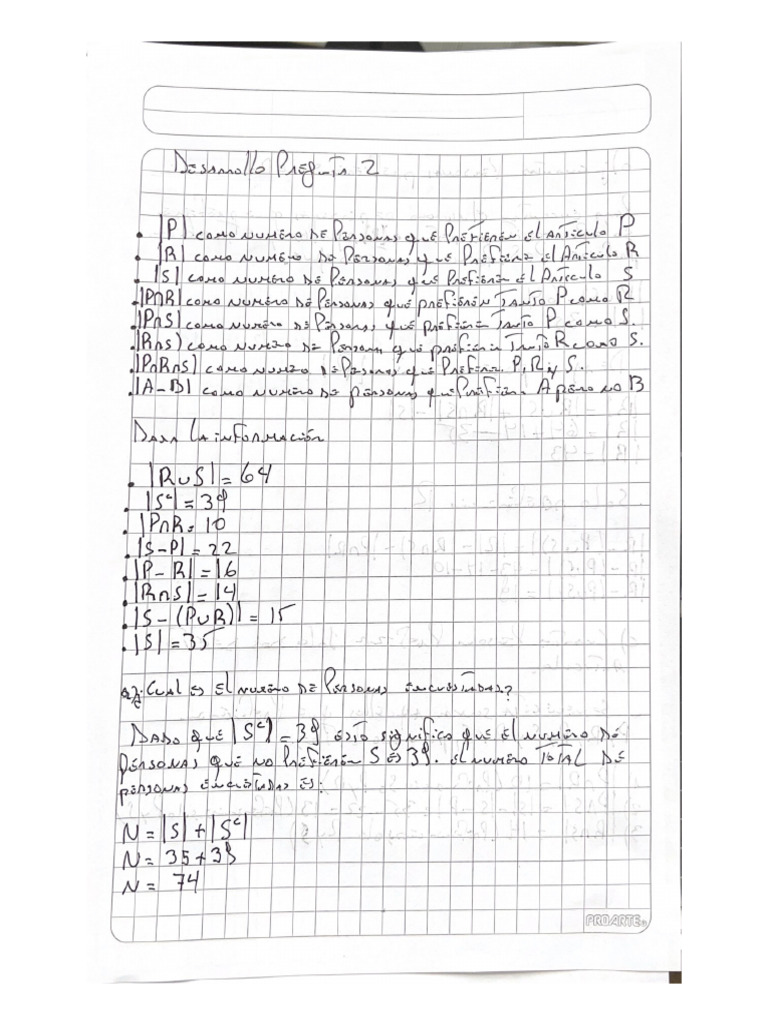 Desarrollo Pregunta 2
• |P| como numero de Personas que Prefieren el Articulo P
• |R| como numero de Personas que Prefieren el Articulo R
• |S| como numero de Personas que Prefieren el Articulo S
• |P∩R| como numero de Personas que prefieren Tanto P como R
• |P∩S| como numero de Personas que prefieren Tanto P como S.
• |R∩S| como numero de Personas que prefieren Tanto R como S.
• |P∩R∩S| como numero de Personas que Prefieren P, R y S.
• |A-B| como numero de personas que Prefieren A pero no B
Dada la información
• |R∪S| = 64
• |Sᶜ| = 39
• |P∩R = 10
• |S-P| = 22
• |P-R| = 16
• |R∩S| = 14
• |S-(P∪R)| = 15
• |S| = 35
a) ¿Cual es el numero de Personas encuestadas?
Dado que |Sᶜ| = 39 esto significa que el numero de
personas que no Prefieren S es 39. el numero Total de
personas encuestadas es:
N = |S| + |Sᶜ|
N = 35 + 39
N = 74
PROARTE